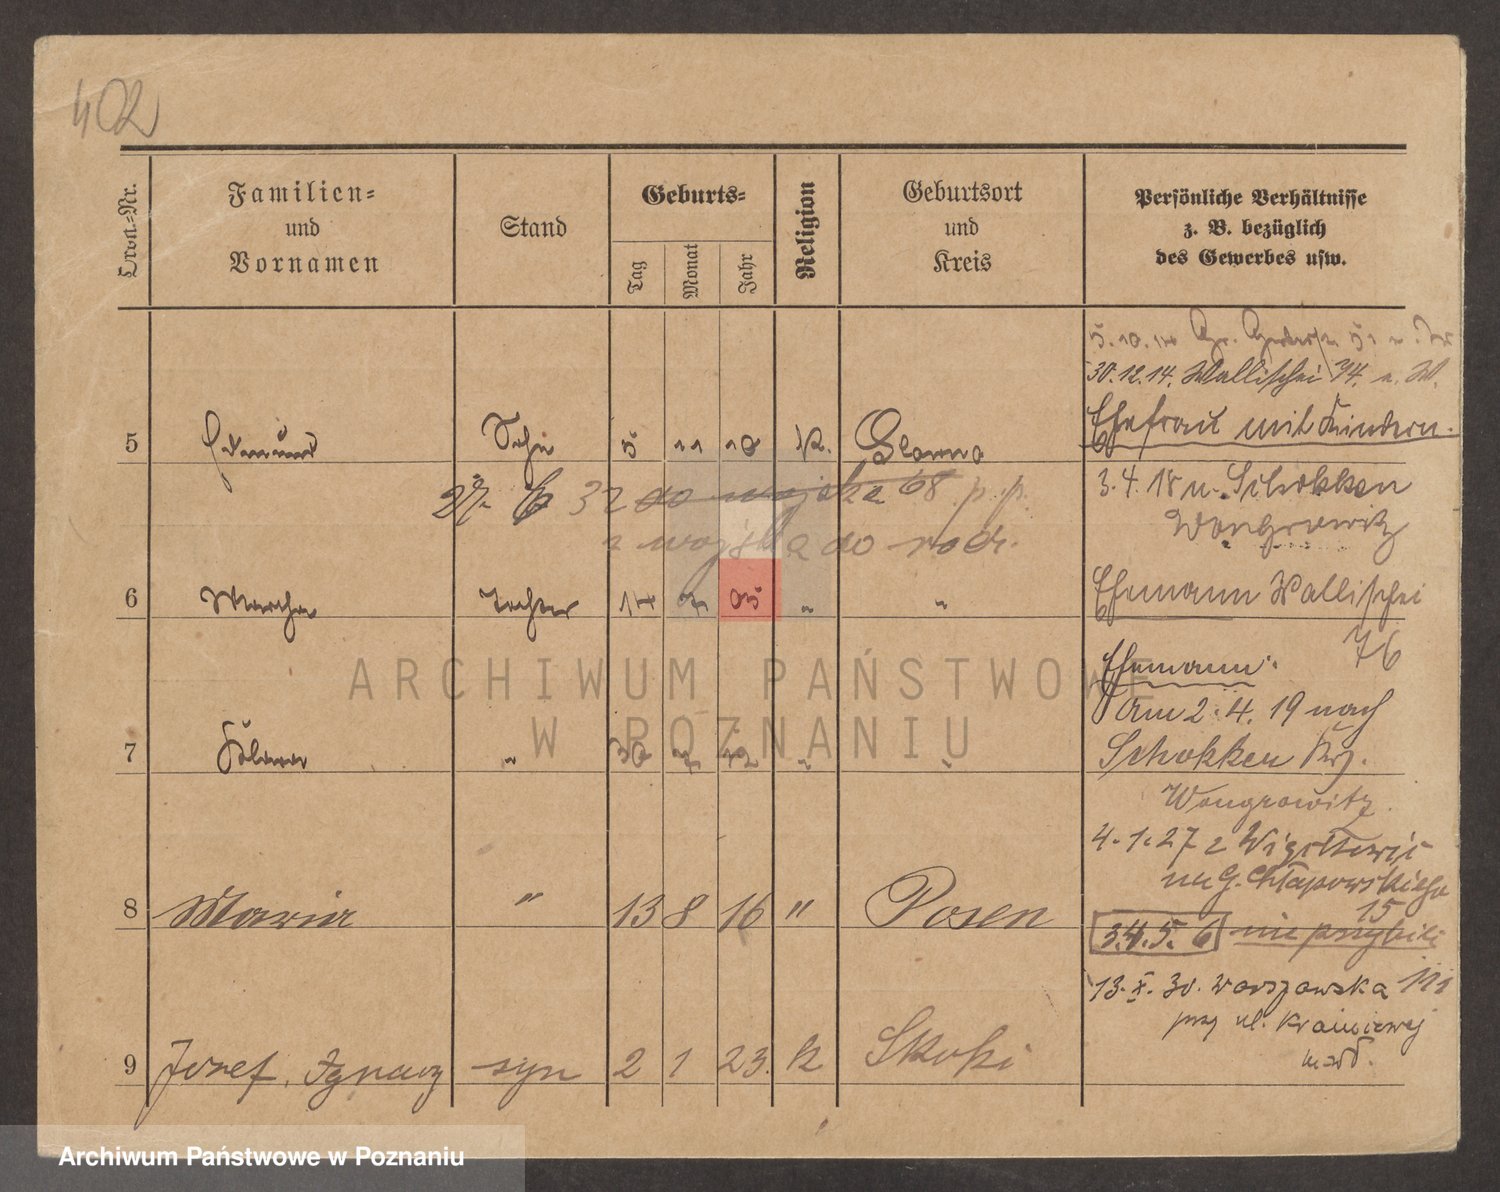 402
Ord.-Nr.
Familien-
und
Vornamen
Stand
Geburts-
Tag
Monat
Jahr
Religion
Geburtsort
und
Kreis
Persönliche Verhältnisse
z. B. bezüglich
des Gewerbes usw.
5.10.14 Gr.
30.12.14. Wallischei 74. a. W.
Ehefrau mit Kindern.
5 Edmund Sohn 5 11 10 K.
3.4.18 n. Schokken
Wongrowitz
27. 6 32 do wojska 68 p. p.
z wojska do rodz.
6 Martha Tochter 14 7 " "
Ehemann Wallischei
76
Ehemann.
am 2.4.19 nach
Schokken Krs.
Wongrowitz.
7 " 30 7 12 " "
4.1.27 z
na G. Chłapowskiego
15
8 Maria " 13 8 16 " Posen
3.4.5. 6 nie przybili
13.X.30. Warszawska
przy ul. Krańcowej
9 Jozef, Ignacy syn 2 1 23. k Skoki
ARCHIWUM PAŃSTWOWE
W POZNANIU
Archiwum Państwowe w Poznaniu